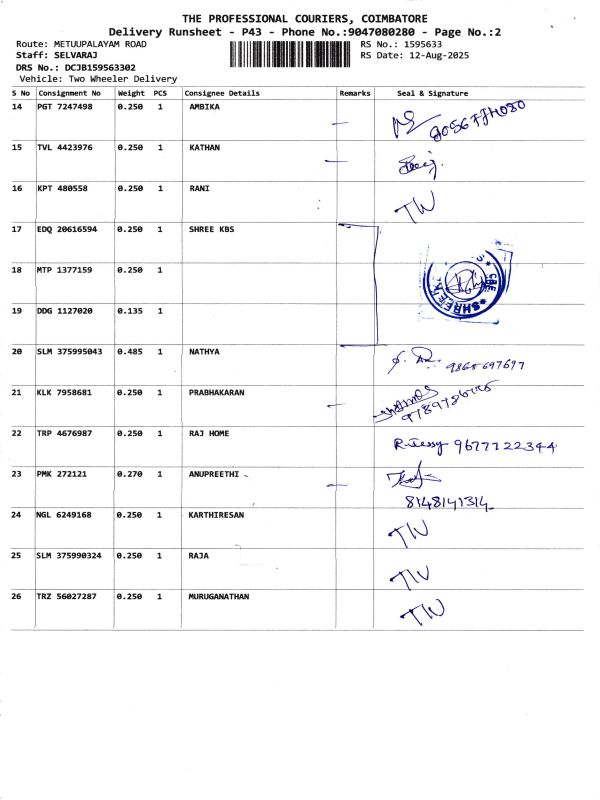 THE PROFESSIONAL COURIERS, COIMBATORE
Delivery Runsheet - P43 - Phone No.:9047080280 - Page No.:2
Route: METUUPALAYAM ROAD RS No.: 1595633
Staff: SELVARAJ RS Date: 12-Aug-2025
DRS No.: DCJB159563302
Vehicle: Two Wheeler Delivery
S No Consignment No Weight PCS Consignee Details Remarks Seal & Signature
14 PGT 7247498 0.250 1 AMBIKA
15 TVL 4423976 0.250 1 KATHAN
16 KPT 480558 0.250 1 RANI TW
17 EDQ 20616594 0.250 1 SHREE KBS
18 MTP 1377159 0.250 1
19 DDG 1127020 0.135 1
20 SLM 375995043 0.485 1 NATHYA 9865697697
21 KLK 7958681 0.250 1 PRABHAKARAN
22 TRP 4676987 0.250 1 RAJ HOME R.Jessy 9677722344
23 PMK 272121 0.270 1 ANUPREETHI 8148141314
24 NGL 6249168 0.250 1 KARTHIRESAN TW
25 SLM 375990324 0.250 1 RAJA TW
26 TRZ 56027287 0.250 1 MURUGANATHAN TW